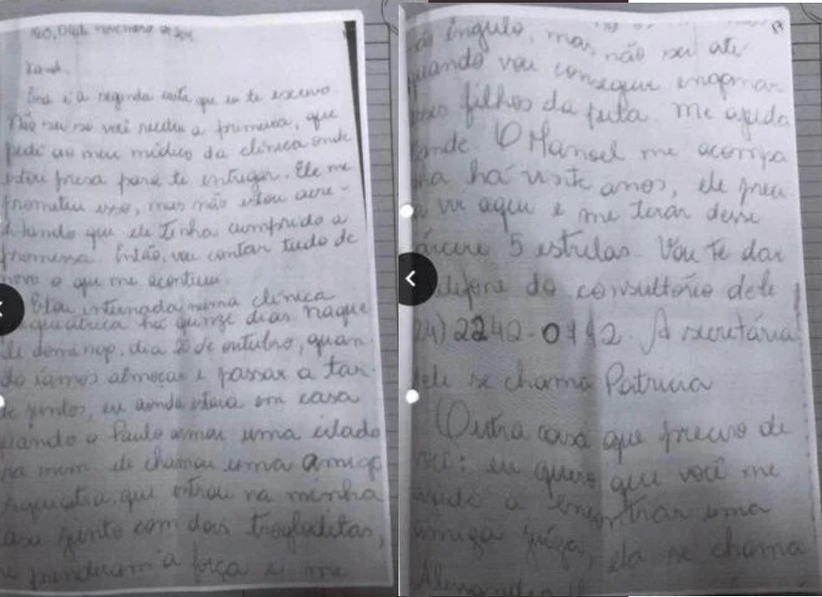 novembro de
Esta é a segunda carta que eu te escrevo.
Não sei se você recebeu a primeira, que
pedi ao meu médico da clínica onde
estou presa para te entregar. Ele me
prometeu isso, mas não estou acre-
ditando que ele tenha cumprido a
promessa. Então, vou contar tudo de
novo o que me aconteceu.
Estou internada numa clínica
há quinze dias. Naque
le domingo, dia 20 de outubro, quan
do íamos almoçar e passar a tar
de juntos, eu ainda estava em casa
quando o Paulo armou uma cilada
ra mim. Ele chamou uma amiga
que entrou na minha
junto com dois trogloditas,
a força e me
ângulo, mas não sei até
quando vou conseguir enganar
filhos da puta. Me ajuda
O Manoel me acompa
há vinte anos, ele preci
vir aqui e me tirar desse
cárcere 5 estrelas. Vou te dar
telefone do consultório dele
24) 2242-0142. A secretária
dele se chama Patricia
Outra coisa que preciso de
eu quero que você me
ajude a encontrar uma
amiga ela se chama